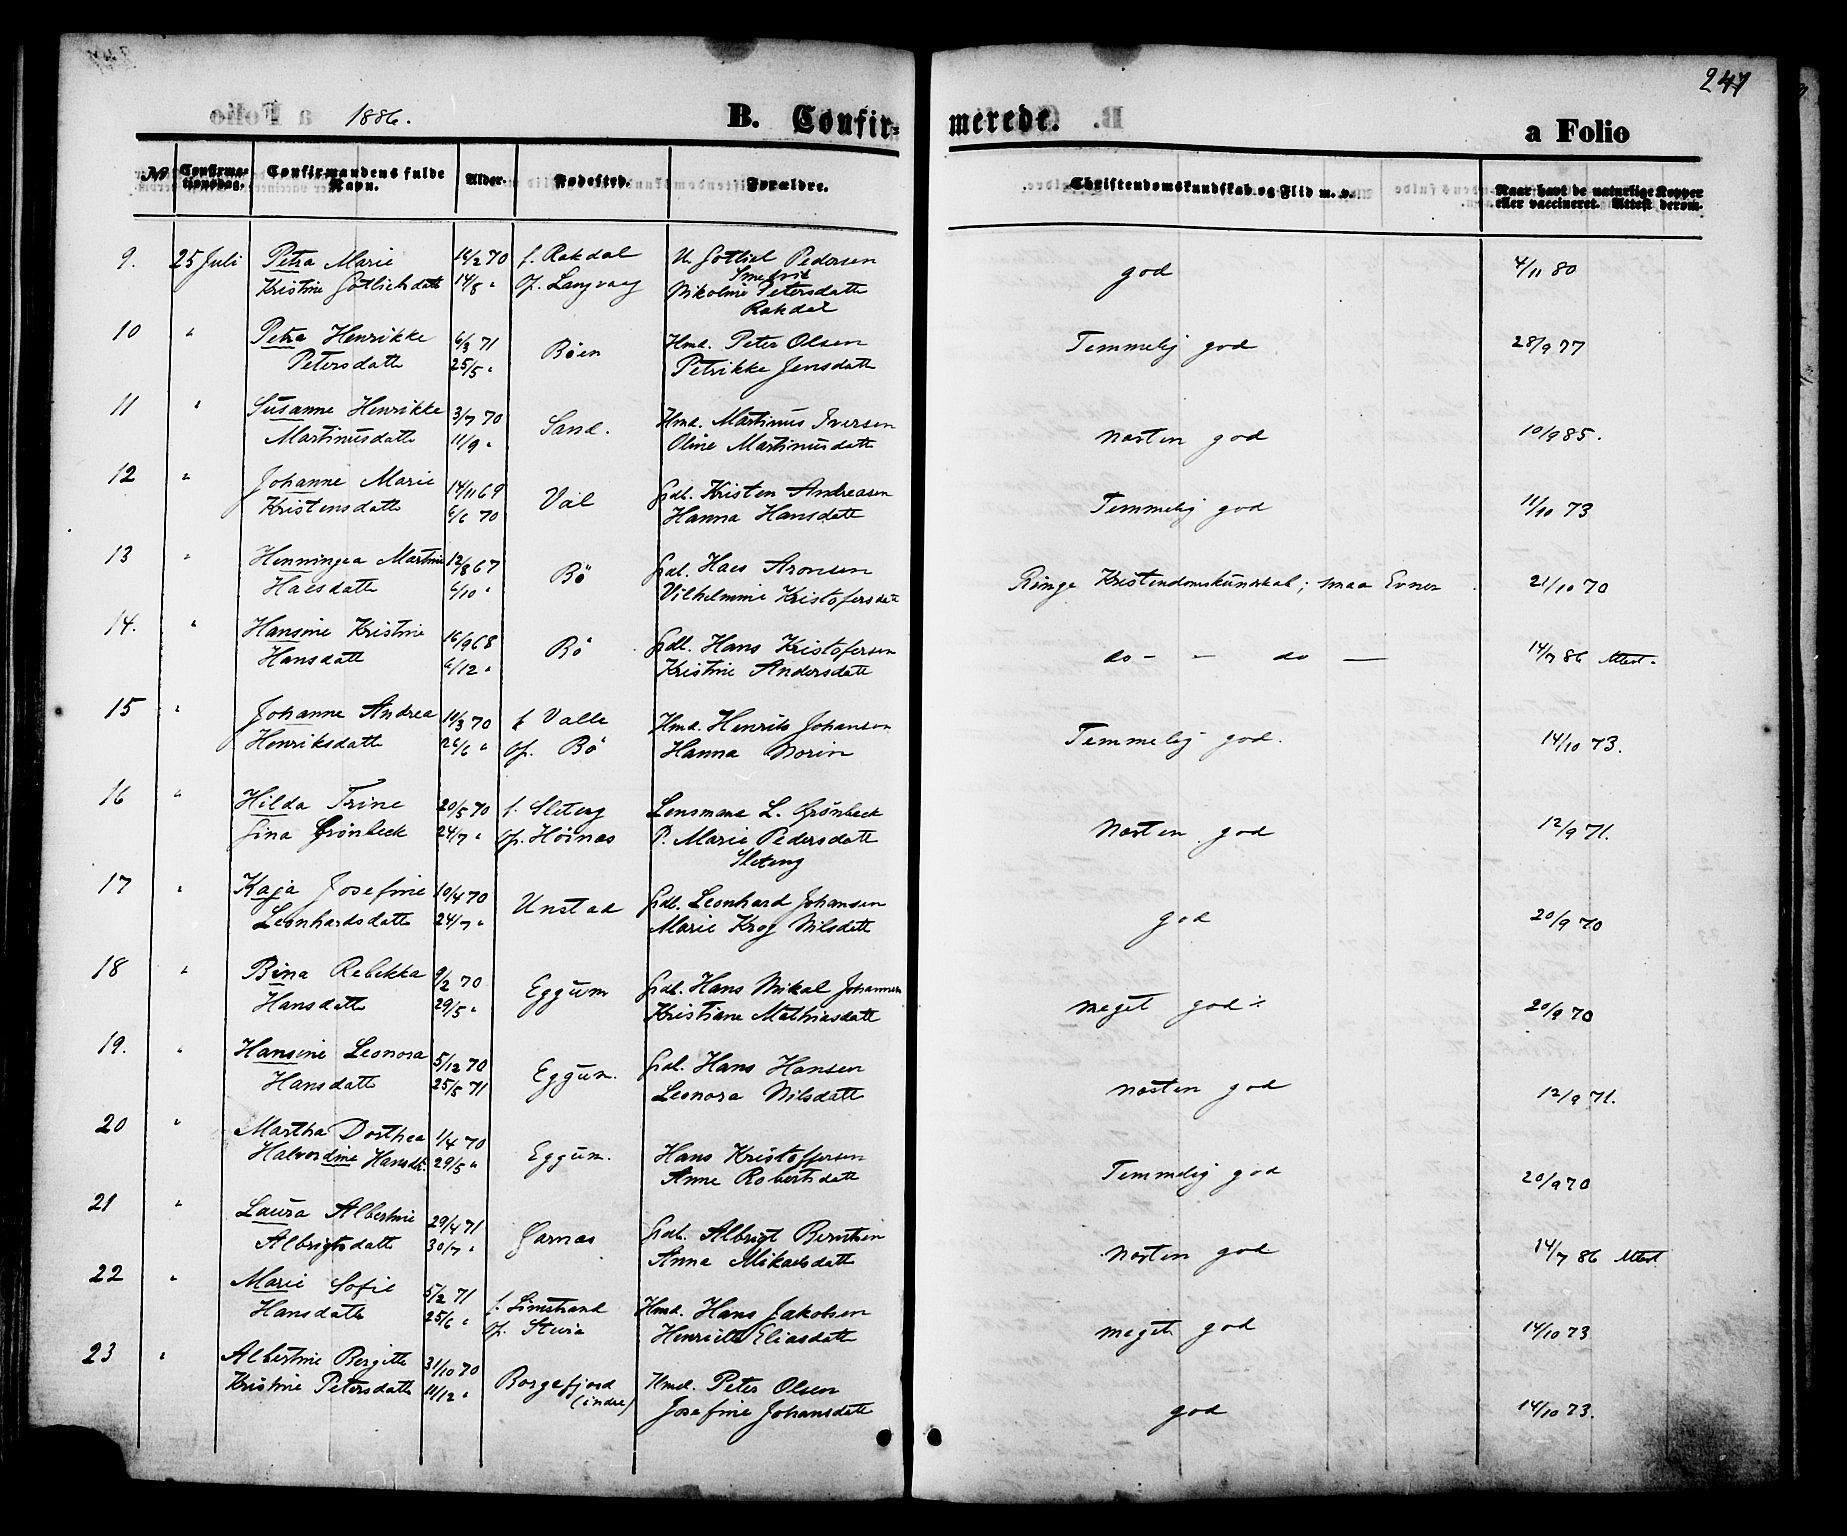 1886. B. Confir- merede. a Folio 247
№ Confirmationsdag. Confirmandens fulde Navn. Alder. Fødested. Forældre. Christendomskundskab og Flid m. v. Naar havt de naturlige Kopper eller vaccineret. Attest derom.
9. 25 Juli Petra Marie 16/2 70 f. Rakdal U. Gotlieb Pedersen god 4/11 80
Kristine Gotliebsdatt 14/8 " Opf. Langvaag Smetvik
Nikoline Petersdatt
Rakdal
10 " Petra Henrikke 6/3 71 Bøen Hmd. Peter Olsen Temmelig god 28/9 77
Petersdatt 25/5 " Petrikke Jensdatt
11 " Susanne Henrikke 3/7 70 Sand. Hmd. Martinus Iversen næsten god 10/9 85.
Martinusdatt 11/9 " Oline Martinusdatt
12 " Johanne Marie 14/11 69 Val Gdb. Kristen Andreasen Temmelig god 11/10 73
Kristensdatt 6/6 70 Hanna Hansdatt
13 " Henningea Martine 12/8 67 Bø Gdb. Haes Aronsen Ringe Kristendomskundskab; smaa Evner 21/10 70
Haesdatt 6/10 " Vilhelmine Kristofersdatt
14. " Hansine Kristine 16/9 68 Bø Gdb. Hans Kristofersen do - - do — 14/7 86 Attest.
Hansdatt 6/12 " Kristine Andersdatt
15 " Johanne Andrea 11/3 70 f Valle Hmd. Henrik Johansen Temmelig god. 14/10 73.
Henriksdatt 26/6 " opf. Bø Hanna Norin
16 " Hilda Trine 20/5 70 f. Sleteng Lensmann L. Grønbeck Næsten god 12/9 71.
Gina Grønbeck 24/7 " opf. Høinæs P. Marie Pedersdatt
Sleteng
17 " Kaja Josefine 10/4 70 Unstad Gdb. Leonhard Johansen god 20/9 70
Leonhardsdatt 24/7 " Marie Krog Nilsdatt
18 " Bina Rebekka 9/2 70 Eggum Gdb. Hans Mikal Johannesen meget god ÷ 20/9 70
Hansdatt 29/5 " Kristiane Mathiasdatt
19. " Hansine Leonora 5/12 70 Eggum. Gdb. Hans Hansen næsten god 12/9 71.
Hansdatt 25/5 71 Leonora Nilsdatt
20 " Martha Dorthea 1/4 70 Eggum. Hans Kristoffersen Temmelig god 20/9 70
Halvordine Hansdt. 29/5 " Anne Robertsdatt
21 " Laura Albertine 29/4 71 Garnæs Gdb. Albrigt Berntsen Næsten god 14/7 86 Attest
Albrigtsdatt 30/7 " Anna Mikaelsdatt
22 " Marie Sofie 5/2 71 f. Limstrand Hmd. Hans Jakobsen meget god 14/10 73
Hansdatt 25/6 " opf. Steira Henriette Eliasdatt
23 " Albertine Bergitte 31/10 70 Borgefjord Hmd. Peter Olsen god 14/10 73.
Kristine Petersdatt 11/12 " (indre) Josefine Johansdatt